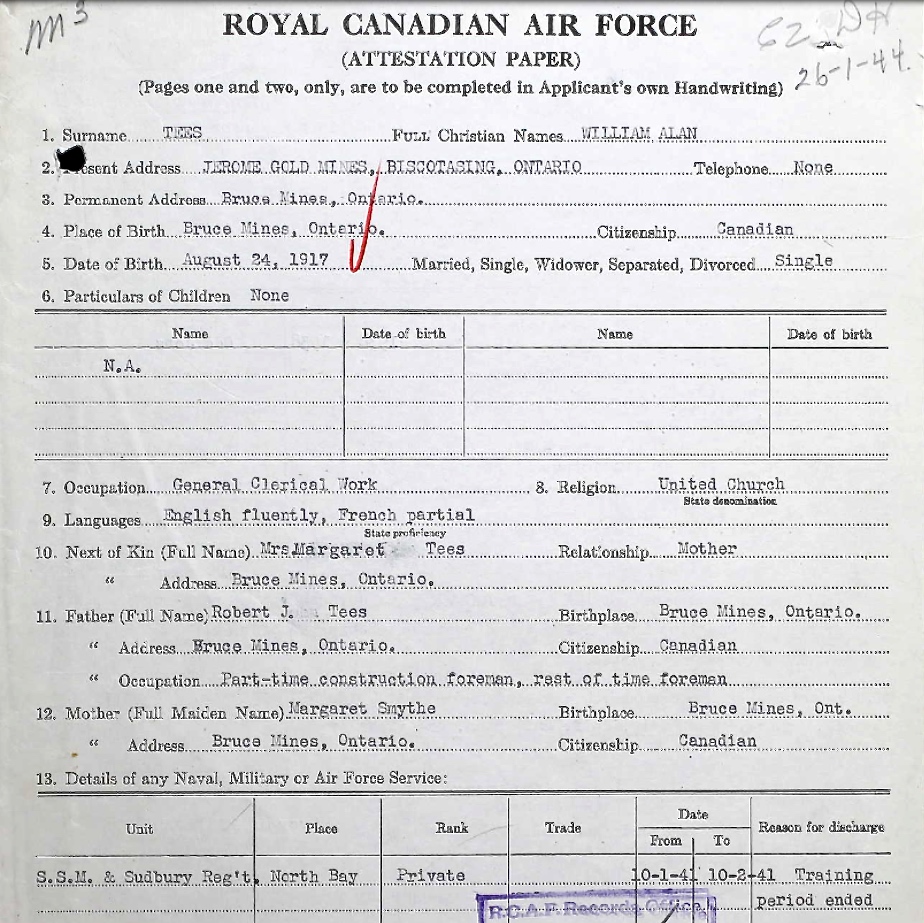 m³
ROYAL CANADIAN AIR FORCE
(ATTESTATION PAPER)
26-1-44.
(Pages one and two, only, are to be completed in Applicant's own Handwriting)
1. Surname TEES Full Christian Names WILLIAM ALAN
2. esent Address JEROME GOLD MINES, BISCOTASING, ONTARIO Telephone None
3. Permanent Address Bruce Mines, Ontario.
4. Place of Birth Bruce Mines, Ontario. Citizenship Canadian
5. Date of Birth August 24, 1917 Married, Single, Widower, Separated, Divorced Single
6. Particulars of Children None
Name Date of birth Name Date of birth
N.A.
7. Occupation General Clerical Work 8. Religion United Church
State denomination
9. Languages English fluently, French partial
State proficiency
10. Next of Kin (Full Name) Mrs.Margaret Tees Relationship Mother
" Address Bruce Mines, Ontario.
11. Father (Full Name) Robert J. Tees Birthplace Bruce Mines, Ontario.
" Address Bruce Mines, Ontario. Citizenship Canadian
" Occupation Part-time construction foreman, rest of time foreman
12. Mother (Full Maiden Name) Margaret Smythe Birthplace Bruce Mines, Ont.
" Address Bruce Mines, Ontario. Citizenship Canadian
13. Details of any Naval, Military or Air Force Service:
Unit Place Rank Trade Date Reason for discharge
From To
S.S.M. & Sudbury Reg't. North Bay Private 10-1-41 10-2-41 Training
period ended
R.C.A.F. Records Office